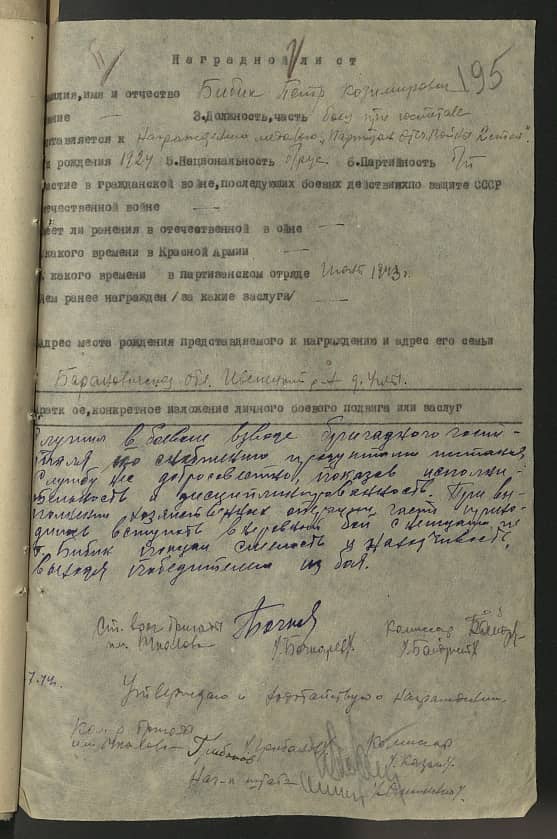 195
Наградной лист
амилия,имя и отчество Бибик Петр Казимирович
ание — 3.Должность,часть боец при госпитале
ставляется к награждению медалью "Партизан Отеч. Войны II степ."
д рождения 1924 5.Национальность б/рус 6.Партийность б/п
астие в гражданской войне,последующих боевых действиях по защите СССР
течественной войне —
меет ли ранения в отечественной в ойне —
какого времени в Красной Армии —
какого времени в партизанском отряде 1943г.
Чем ранее награжден /за какие заслуги/ —
дрес места рождения представляемого к награждению и адрес его семьи
Барановичская обл. Ивенецкий р-н д.
Кратк ое,конкретное изложение личного боевого подвига или заслуг
служил в боевом взводе бригадного госпи-
таля по снабжению продуктами питания
службу нес добросовестно, показав исполни-
тельность и дисциплинированность. При вы-
полнении хозяйственных операций часто прихо-
дилось вступать в неровный бой с немцами, где
т. Бибик показал смелость и находчивость,
выходя победителем из боя.
Ст. врач бригады Комиссар
им. Чкалова /Бочкарев/
Утверждаю и ходатайствую о награждении
Ком-р бригады Комиссар
им. Чкалова /Грибанов/ /Казак/
Нач-к штаба